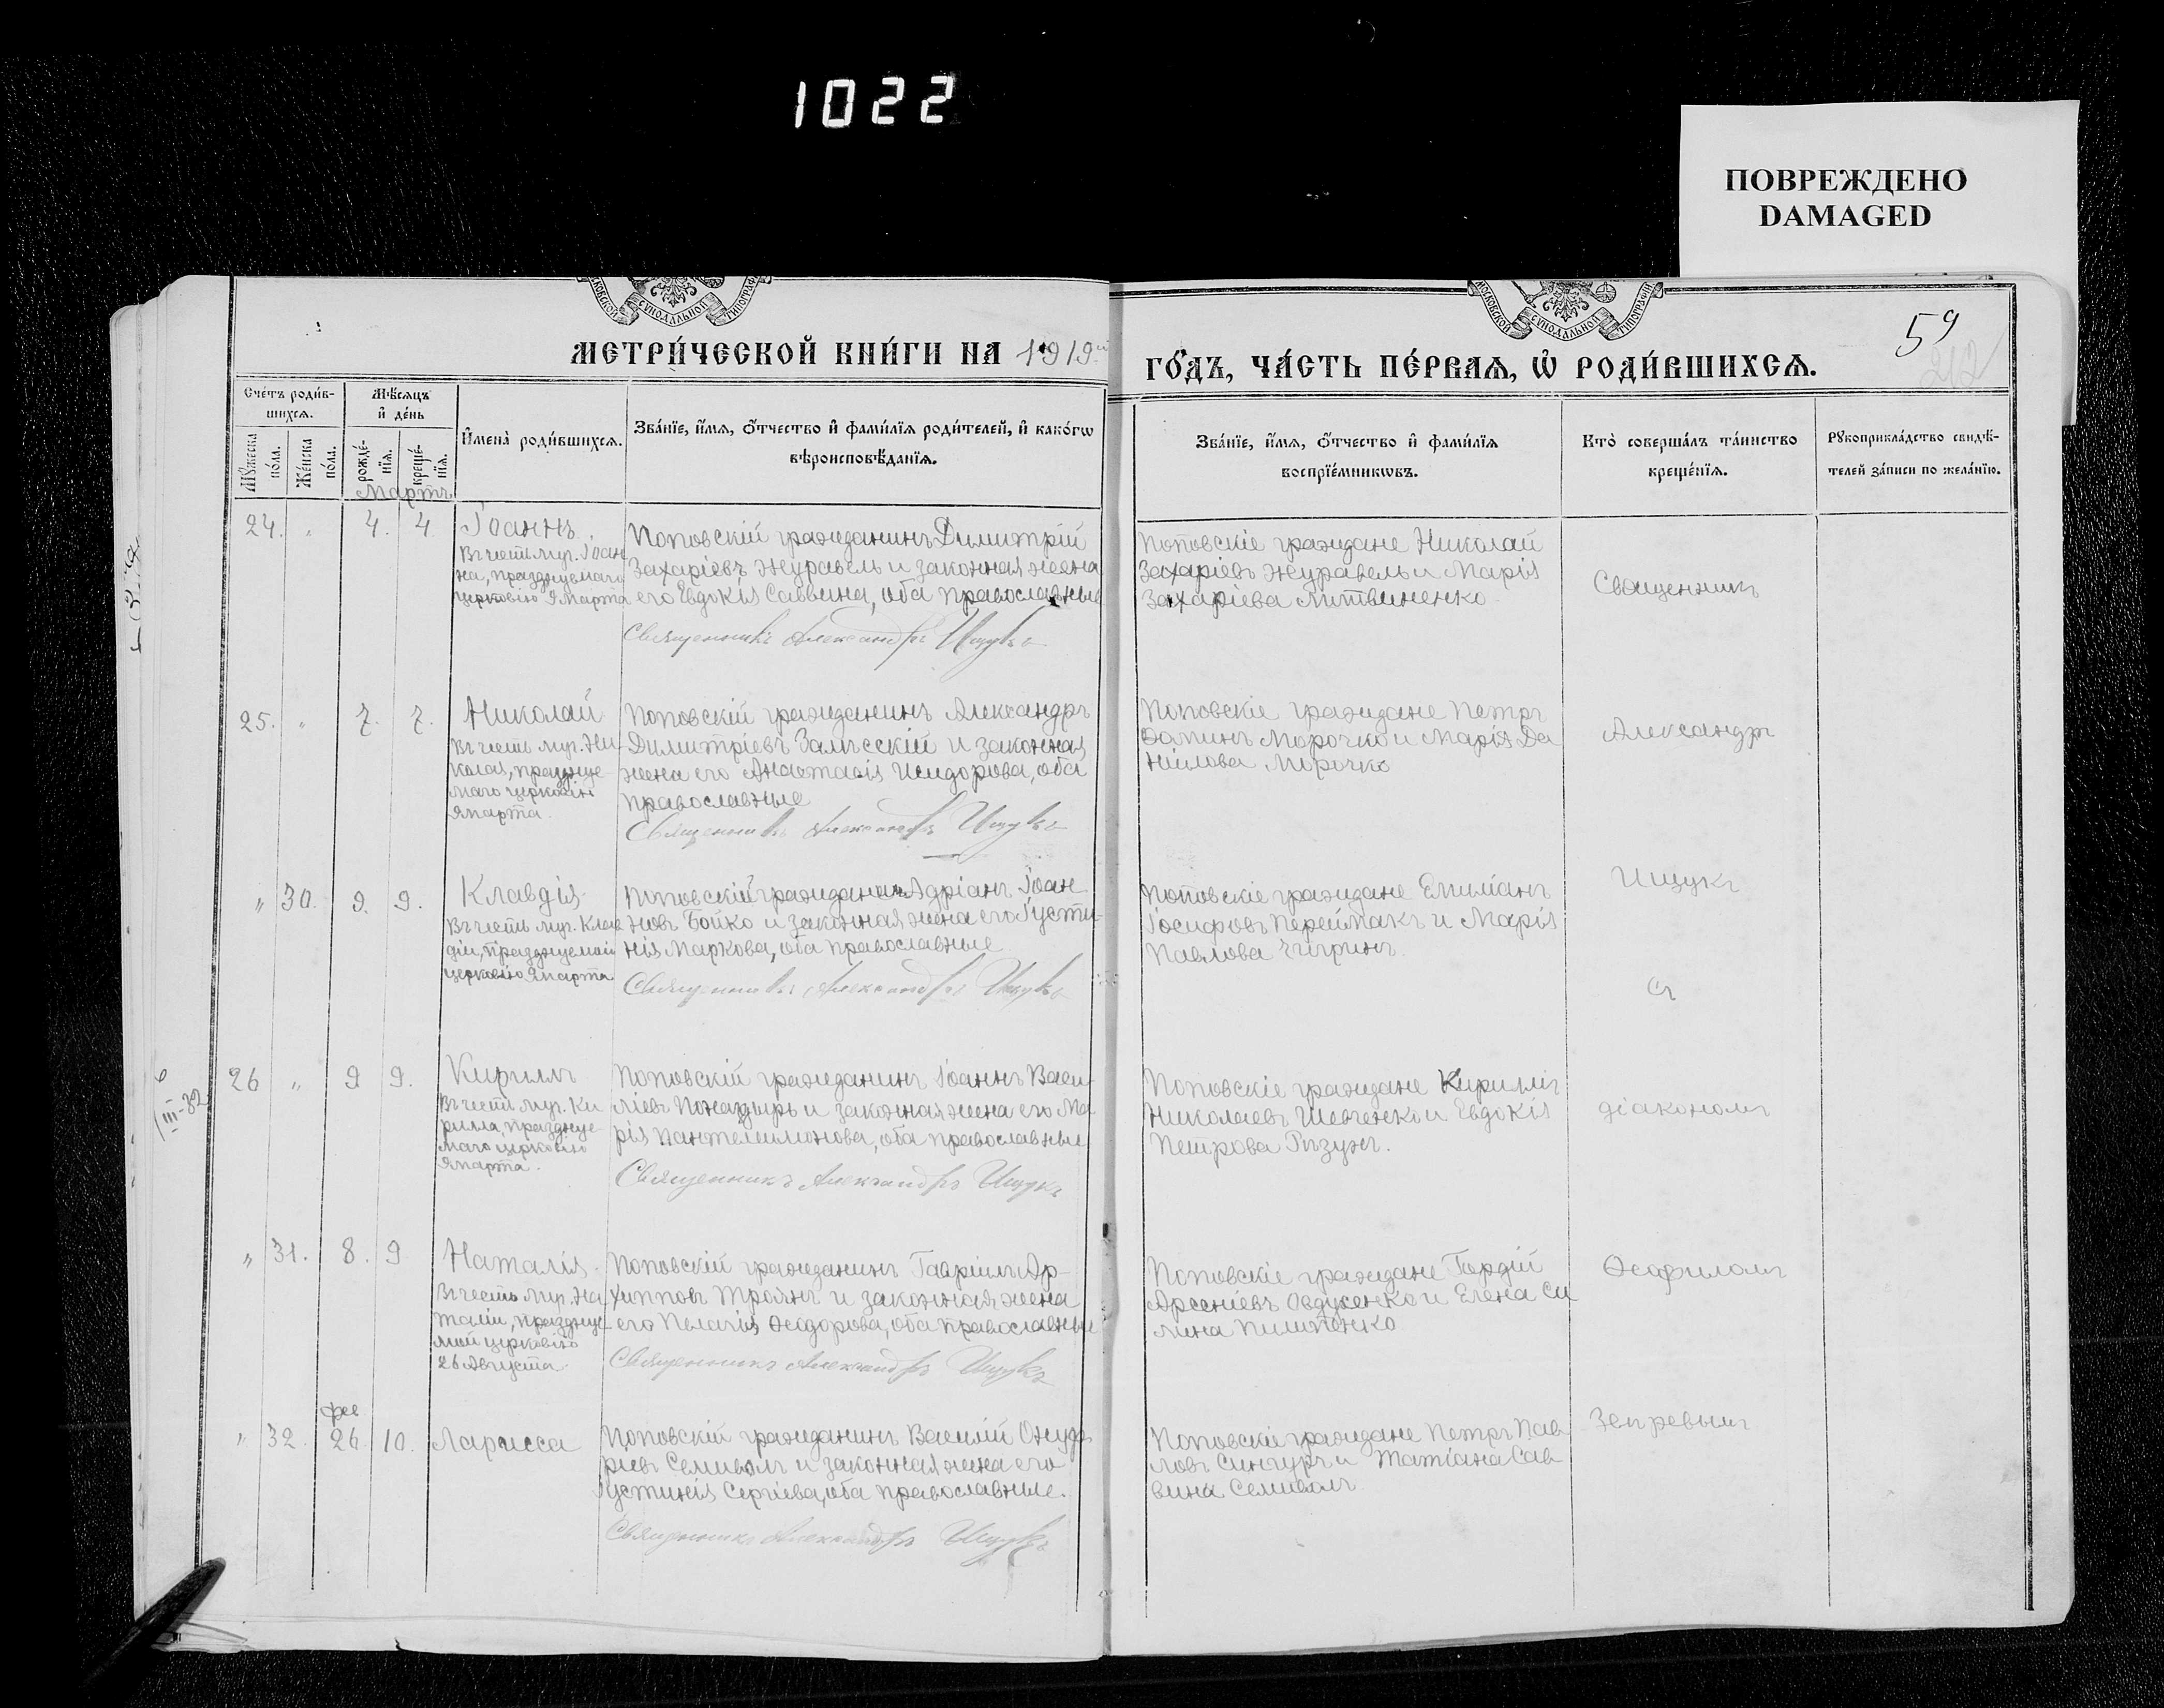 1022
ПОВРЕЖДЕНО
DAMAGED
МОСКОВСКОЙ СУНОДАЛЬНОЙ ТИПОГРАФІИ
МОСКОВСКОЙ СУНОДАЛЬНОЙ ТИПОГРАФІИ
59
212
МЕТРИ́ЧЕСКОЙ КНИ́ГИ НА 1919й
ГО́ДЪ, ЧА́СТЬ ПЕ́РВАѦ, Ѡ҆ РОДИ́ВШИХСѦ.
Сче́тъ роди́в-
шихсѧ.
Мꙋ́жеска по́ла.
Же́нска по́ла.
Мѣ́сѧцъ
и҆ де́нь
рожде́-
нїѧ.
креще́-
нїѧ.
И҆мена̀ роди́вшихсѧ.
Зва́нїе, и҆́мѧ, ѻ҆́тчество и҆ фами́лїѧ роди́телей, и҆ како́гѡ
вѣроисповѣ́данїѧ.
Зва́нїе, и҆́мѧ, ѻ҆́тчество и҆ фами́лїѧ
воспрїе́мникѡвъ.
Кто̀ соверша́лъ та́инство
креще́нїѧ.
Рꙋкоприкла́дство свидѣ́-
телей за́писи по жела́нїю.
Мартъ
24. " 4. 4
Іоаннъ
Въ честь муч. Іоан
на, празднуемаго
церковію 9 Марта
Поповскій гражданинъ Димитрій
Захаріевъ Журавель и законная жена
его Евдокія Саввина, оба православные
Священникъ Александръ Ищукъ
Поповскіе граждане Николай
Захаріевъ Журавель и Марія
Захаріева Литвиненко
Священникъ
25. " 7. 7.
Николай
Въ честь муч. Ни-
колая, празднуе
маго церковію
9 марта.
Поповскій гражданинъ Александръ
Димитріевъ Залѣсскій и законная
жена его Анастасія Исидорова, оба
православные
Священникъ Александръ Ищукъ
Поповскіе граждане Петръ
Фоминъ Морочко и Марія Да
ніилова Морочко
Александръ
" 30. 9. 9.
Клавдія
Въ честь муч. Клав
діи, празднуемой
церковію 9 Марта
Поповскій гражданинъ Адріанъ Іоан
новъ Бойко и законная жена его Іусти-
нія Маркова, оба православные
Священникъ Александръ Ищукъ
Поповскіе граждане Емиліанъ
Іосифовъ Переймакъ и Марія
Павлова Чигринъ.
Ищукъ
съ
6
III-32
26 " 9 9.
Кириллъ
Въ честь муч. Ки
рилла, празднуе
маго церковію
9 марта.
Поповскій гражданинъ Іоаннъ Васи-
ліевъ и законная жена его Ма
рія Пантелимонова, оба православные
Священникъ Александръ Ищукъ
Поповскіе граждане Кириллъ
Николаевъ Шевченко и Евдокія
Петрова Ризунъ.
діакономъ
" 31. 8. 9
Наталія.
Въ честь муч. На
таліи, празднуе-
мой церковію
26 Августа.
Поповскій гражданинъ Гавріилъ Ар-
хипповъ Троянъ и законная жена
его Пелагія Ѳеодорова, оба православные
Священникъ Александръ Ищукъ
Поповскіе граждане Гордій
Арсеніевъ Овдіенко и Елена Си
мина Пилипенко
Ѳеофиломъ
фев
" 32. 26. 10.
Ларисса
Поповскій гражданинъ Василій Онуф
ріевъ Семиволъ и законная жена его
Іустинія Сергіева, оба православные.
Священникъ Александръ Ищукъ
Поповскіе граждане Петръ Пав
ловъ Сингуръ и Татіана Сав
вина Семиволъ